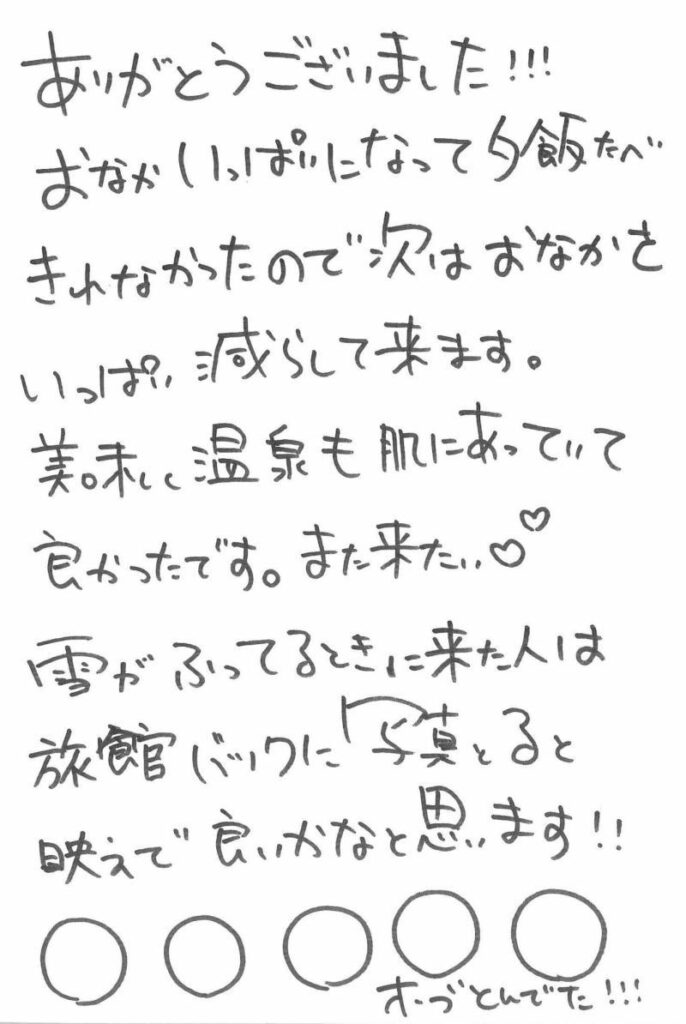 ありがとうございました!!!
おなかいっぱいになって夕飯たべ
きれなかったので次はおなかを
いっぱい減らして来ます。
美味しく温泉も肌にあっていて
良かったです。また来たい♡♡
雪がふってるときに来た人は
旅館バックに写真とると
映えで良いかなと思います!!
オーブとんでた!!!